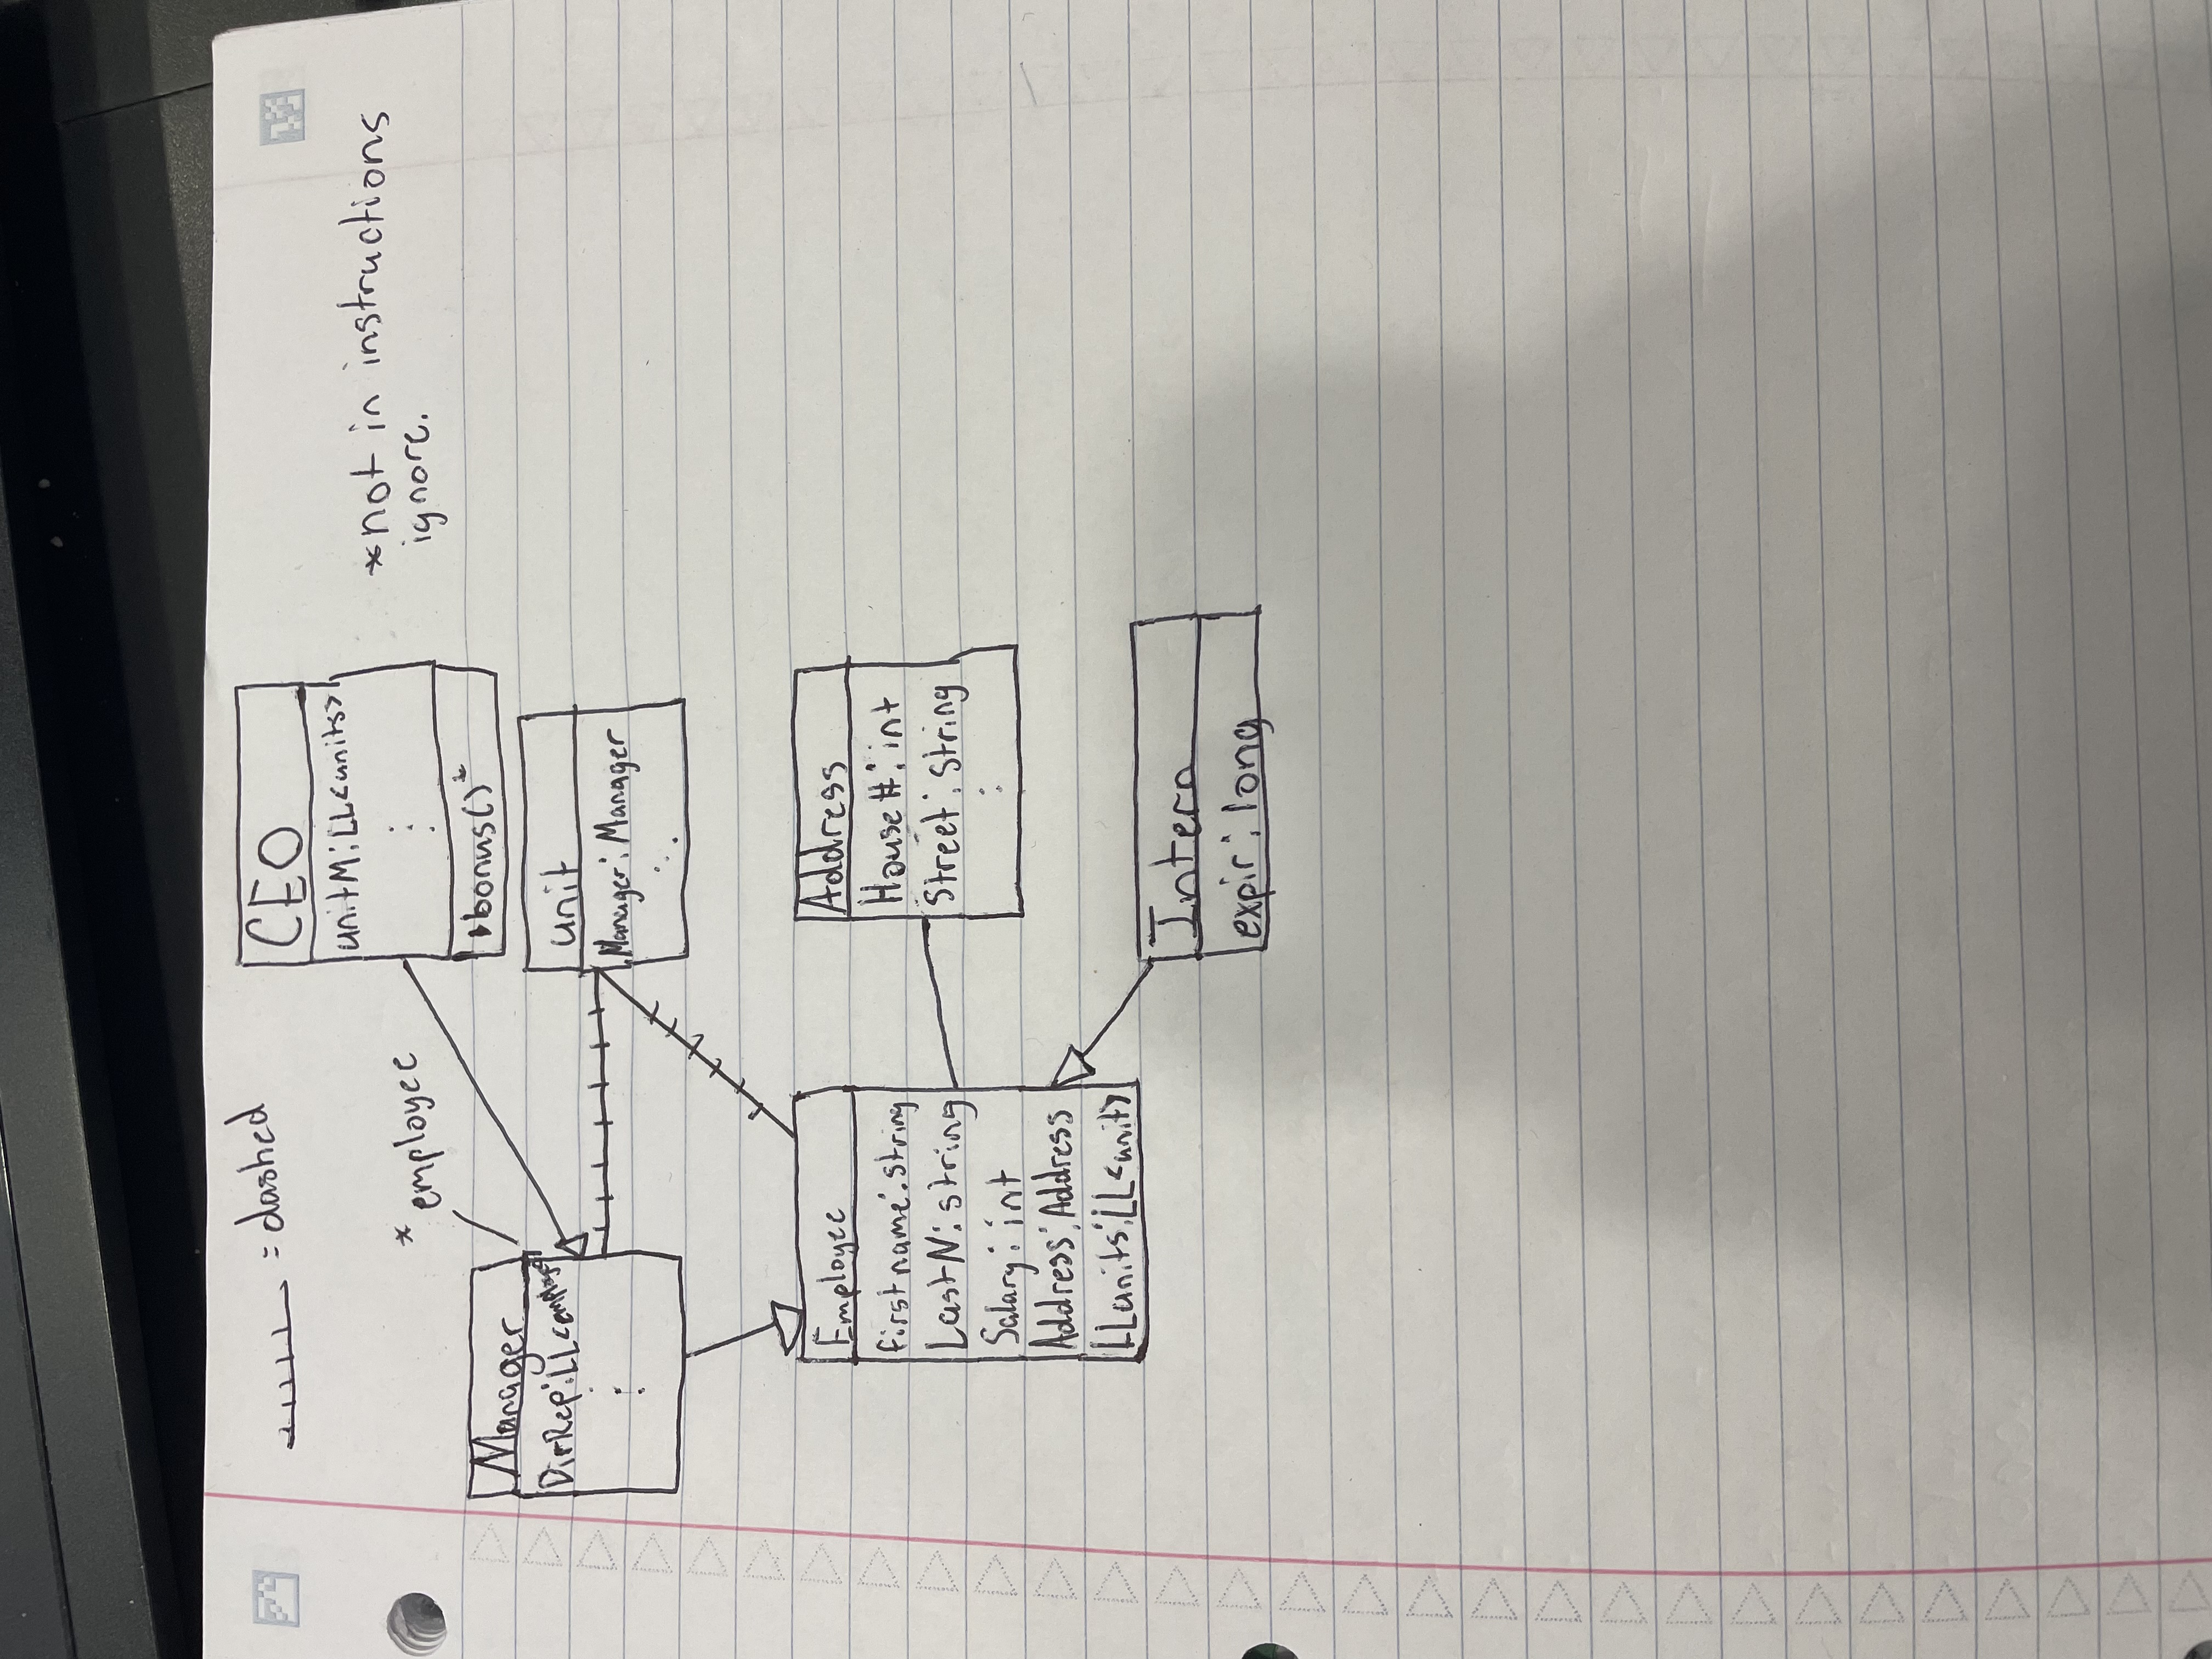 = dashed
CEO
unitM:LL<units>
*not in instructions
ignore.
* employee
bonus()*
Manager
DirRep:LL<employee>
unit
Manager: Manager
Employee
firstname:string
LastN: string
Salary: int
Address:Address
LLunits:LL<unit>
Address
House#: int
Street: String
Intern
expir: long